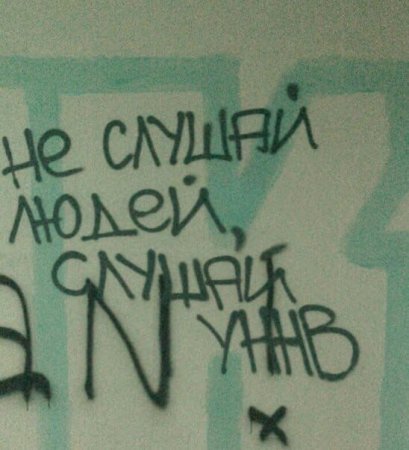 не СЛУШАЙ
ЛЮДей,
СЛУШАЙ
УННВ